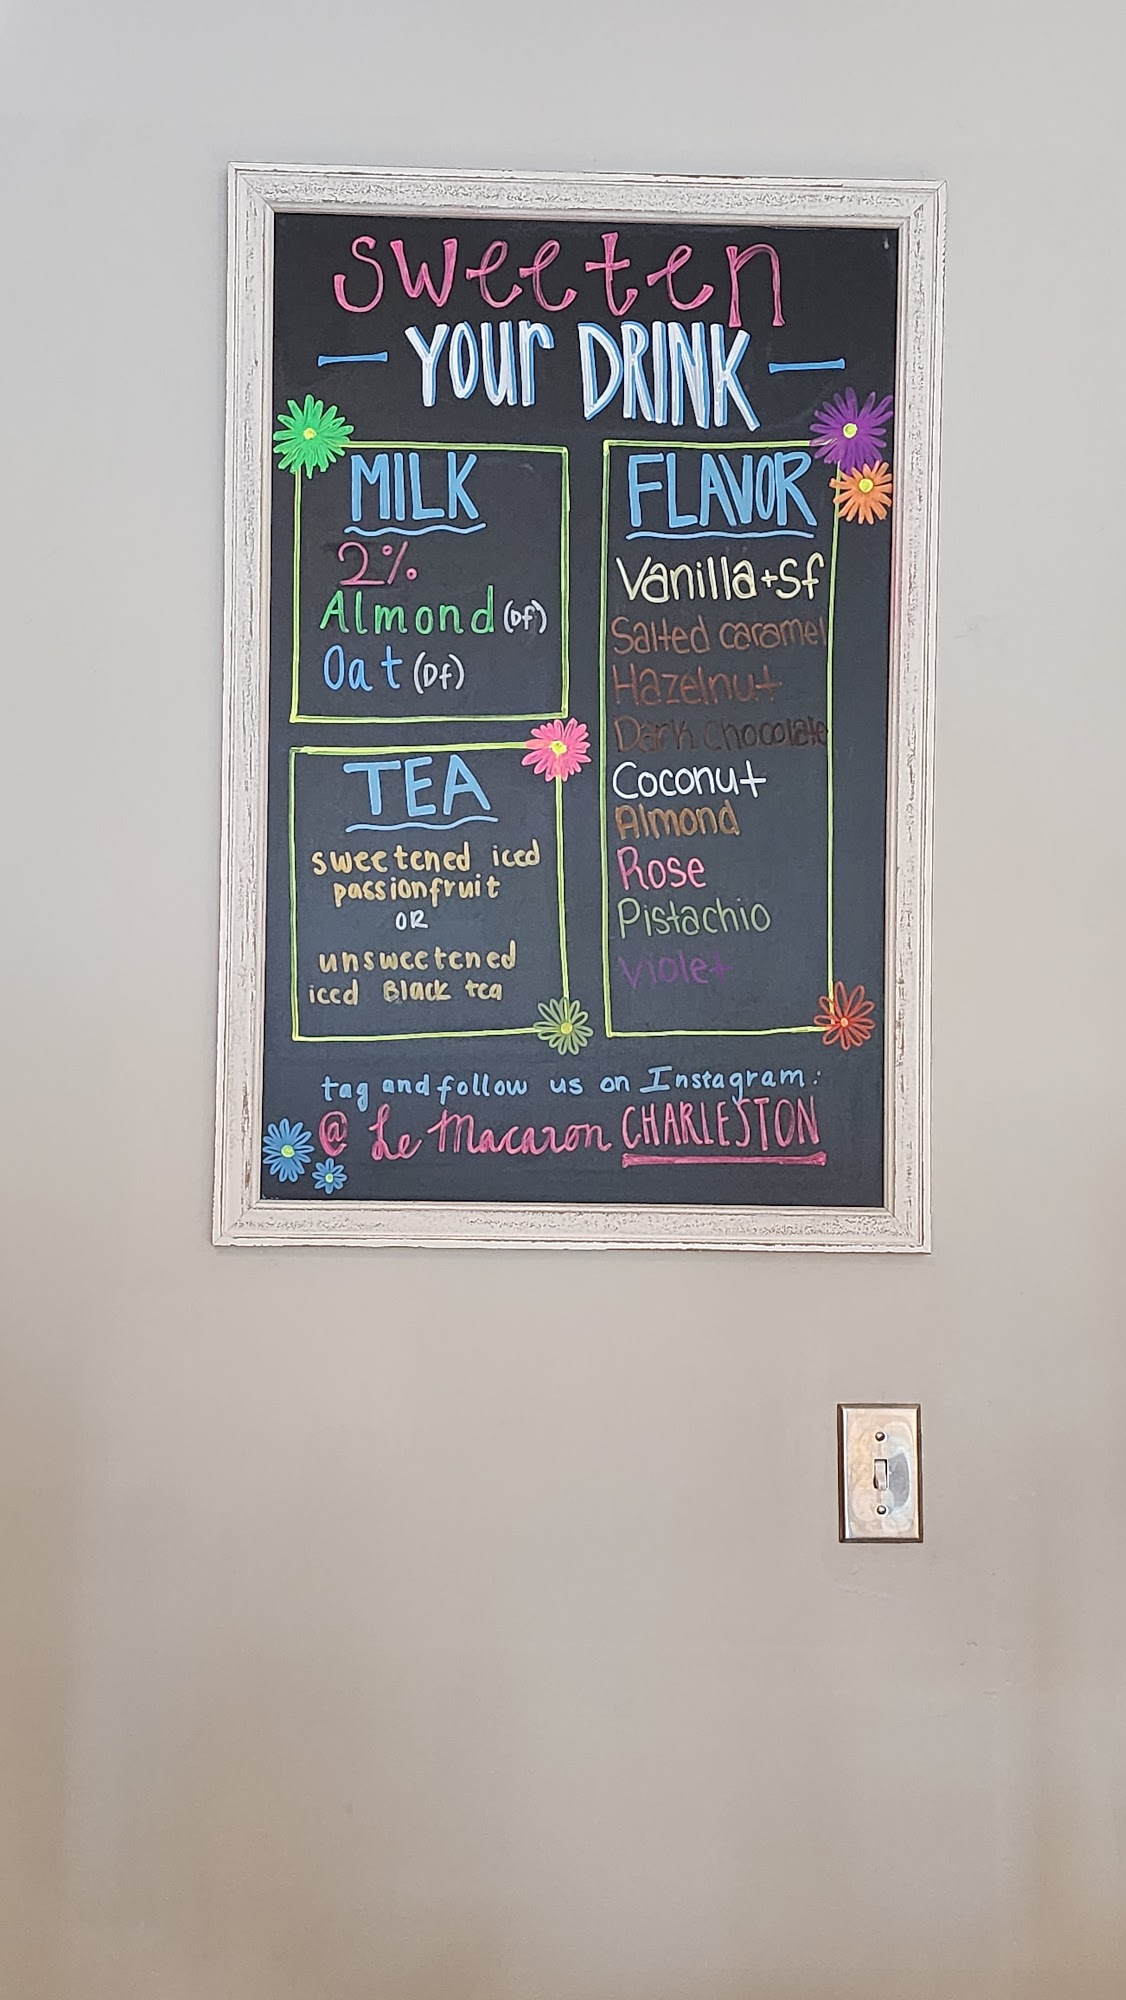 sweeten
YOUr DRINK
MILK
2%
Almond (Df)
Oat (Df)
TEA
sweetened iced
passionfruit
OR
unsweetened
iced Black tea
FLAVOR
Vanilla + Sf
Salted caramel
Hazelnut
Dark chocolate
Coconut
Almond
Rose
Pistachio
Violet
tag and follow us on Instagram:
@ Le Macaron CHARLESTON